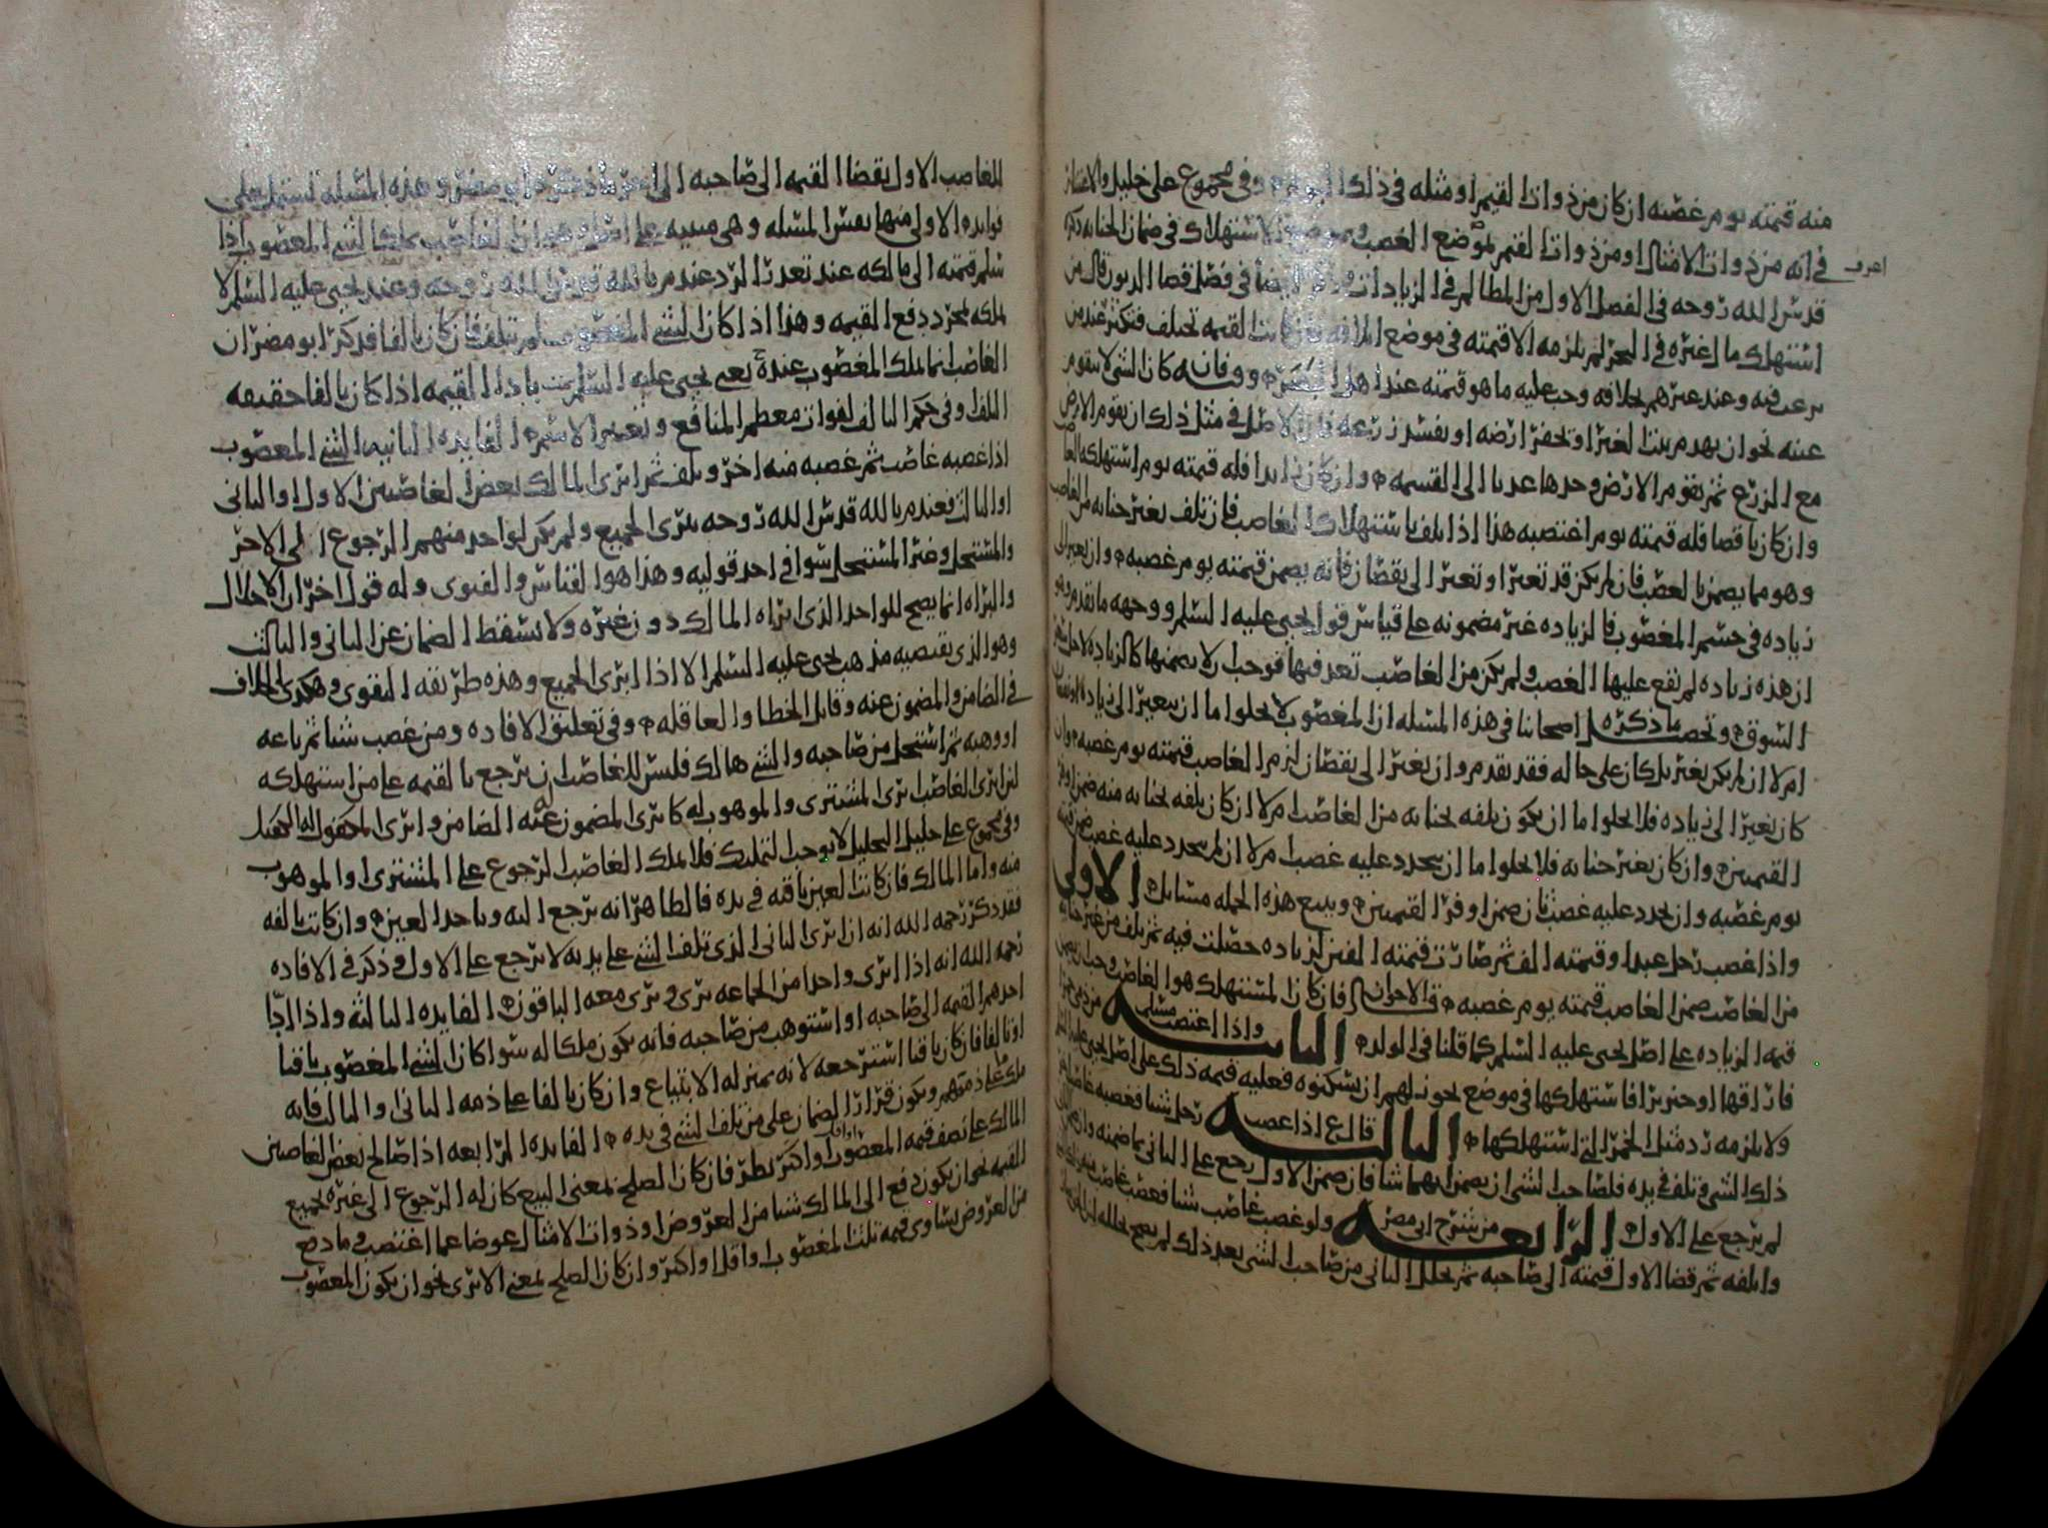 منه قيمته يوم غصبه ان كان من ذوات القيم او مثله في ذلك وفي مجموع علي خليل والاعتبار
في انه من ذوات الامثال او من ذوات القيم بموضع الغصب الاستهلاك في ضمان الجنايه ذكره
اعرف
قدس الله روحه في الفصل الاول من المظالم في الزيادات ايضا في فصل قضا الديون قال من
استهلك مال غيره في البحر لم يلزمه الا قيمته في موضع القيمه تختلف فتكثر عند من
يرغب فيه وعند غيرهم بخلافه وجب عليه ما هو قيمته عند اهل البصر فانه كان الشي لا يتقوم
عينه نحو ان يهدم بيتا لغيره او يحفر ارضه او يفسد زرعه فان الاصل في مثل ذلك ان يقوم الارض
مع الزرع ثم يقوم الارض وحدها عدنا الى القسمه وان كان زايدا فله قيمته يوم استهلكه الغاصب
وان كان ناقصا فله قيمته يوم اغتصبه هذا اذا تلف باستهلاك الغاصب فان تلف بغير جنايه من الغاصب
وهو مما يضمن بالغصب فان لم يكن قد تغير او تغير الى نقصان فانه يضمن قيمته يوم غصبه وان تغير الى
زياده في جسم المغصوب فالزياده غير مضمونه على قياس قول يحيى عليه السلم ووجهه ما تقدم وهو
ان هذه زياده لم يقع عليها الغصب ولم يكن من الغاصب تعد فيها فوجب ان لا يضمنها كالزياده لاجل
السوق وتحصيل ما ذكره اصحابنا في هذه المسله ان المغصوب لا يخلوا اما ان يتغير الى زياده او نقصان
ام لا ان لم يكن يغير بل كان على حاله فقد تقدم وان تغير الى نقصان لزم الغاصب قيمته يوم غصبه وان
كان تغير الى زياده فلا يخلوا اما ان يكون تلفه بجنايه من الغاصب ام لا ان كان تلفه بجنايه منه ضمن اوفر
القيمتين وان كان بغير جنايه فلا يخلوا اما ان يجدد عليه غصب ام لا ان لم يجدد عليه غصب ضمن قيمته
يوم غصبه وان يجدد عليه غصب ثان ضمن اوفر القيمتين ويتبع هذه الجمله مسايل الاولى
واذا غصب رجل عبدا وقيمته الف ثم صارت قيمته الفين لزياده حصلت فيه ثم تلف من غير جنايه
من الغاصب ضمن الغاصب قيمته يوم غصبه قال الاخوان فان كان المستهلك هو الغاصب وجب ان يضمن
قيمه الزياده على اصل يحيى عليه السلم كما قلنا في الولد الثانيه واذا اغتصب مسلم من ذمي خمرا
فاراقها او خنزيرا فاستهلكها في موضع يجوز لهم ان يسكنوه فعليه قيمه ذلك على اصل يحيى عليه السلم
ولا يلزمه رد مثل الخمر التي استهلكها الثالثه قال ع اذا غصب رجل شيا فغصبه غاصب
ذلك الشي فتلف في يده فلصاحب الشي ان يضمن ايهما شا فان ضمن الاول رجع على الثاني بما ضمنه وان ضمن
لم يرجع على الاول الرابعه من شرح ابي مضر ولو غصب غاصب شيا فغصب غاصب منه
واتلفه ثم قضا الاول قيمته الى صاحبه ثم تحلل الثاني من صاحب الشي بعد ذلك لم يصح تحلله
الغاصب الاول بقضا القيمه الى صاحبه ذكره ابو مضر وهذه المسله تشتمل على
فوايد الاولى منها نفس المسله وهي مبنيه على اصل وهو ان الغاصب يملك الشي المغصوب اذا
سلم قيمته الى مالكه عند تعذر الرد عند م بالله قدس الله روحه وعند يحيى عليه السلم لا
يملكه بمجرد دفع القيمه وهذا اذا كان الشي المغصوب لم يتلف فان كان تالفا فذكر ابو مضر ان
الغاصب انما يملك المغصوب عنده يعني يحيى عليه السلم باداء القيمه اذا كان تالفا حقيقه
التلف او في حكم التالف لفوات معظم المنافع وتغيير الاسم الفايده الثانيه الشي المغصوب
اذا غصبه غاصب ثم غصبه منه اخر وتلف ثم ابرى المالك بعض الغاصبين الاول او الثاني
او الثالث فعند م بالله قدس الله روحه يبرى الجميع ولم يكن لواحد منهم الرجوع الى الاخر
والمستحل وغير المستحل سوا في احد قوليه وهذا هو القياس والفتوى وله قول اخر ان الاحلال
والبراه انما يصح للواحد الذي ابراه المالك دون غيره ولا يسقط الضمان عن الثاني والثالث
وهو الذي يقتضيه مذهب يحيى عليه السلم الا اذا ابرى الجميع وهذه طريقه التقوى وهكذى الخلاف
في الضامن والمضمون عنه وقاتل الخطا والعاقله وفي تعليق الافاده ومن غصب شيا ثم باعه
او وهبه ثم استحل من صاحبه والشي هالك فليس للغاصب ان يرجع بالقيمه على من استهلكه
لئن ابرى الغاصب ابرى المشتري والموهوب له كابرى المضمون عنه الضامن وابرى المكفول له الكفيل
وفي مجموع علي خليل التحليل لا يوجب التمليك فلا يملك الغاصب الرجوع على المشتري او الموهوب
منه واما المالك فان كانت العين باقيه في يده فالظاهر انه يرجع اليه وياخد العين وان كانت تالفه
فقد ذكر رحمه الله انه ان ابرى الثاني الذي تلف الشي على يديه لا يرجع على الاول وذكر في الافاده
رحمه الله انه اذا ابرى واحدا من الجماعه برى وبرى معه الباقون الفايده الثالثه واذا ادى
احدهم القيمه الى صاحبه او استوهب من صاحبه فانه يكون ملكا له سوا كان الشي المغصوب باقيا
او تالفا فان كان باقيا استرجعه لانه بمنزله الابتياع وان كان تالفا على ذمه الثاني والثالث فانه
ملك على ذمتهم ويكون قرار الضمان على من تلف الشي في يده الفايده الرابعه اذا صالح بعض الغاصبين
المالك على نصف قيمه المغصوب او اقل او اكثر نظر فان كان الصلح بمعنى البيع كان له الرجوع الى غيره بجميع
القيمه نحو ان يكون دفع الى المالك شيا من العروض او ذوات الامثال عوضا عما اغتصب وما دفع
من العروض يساوي قيمه ثلث المغصوب او اقل او اكثر وان كان الصلح بمعنى الابرى نحو ان يكون المغصوب